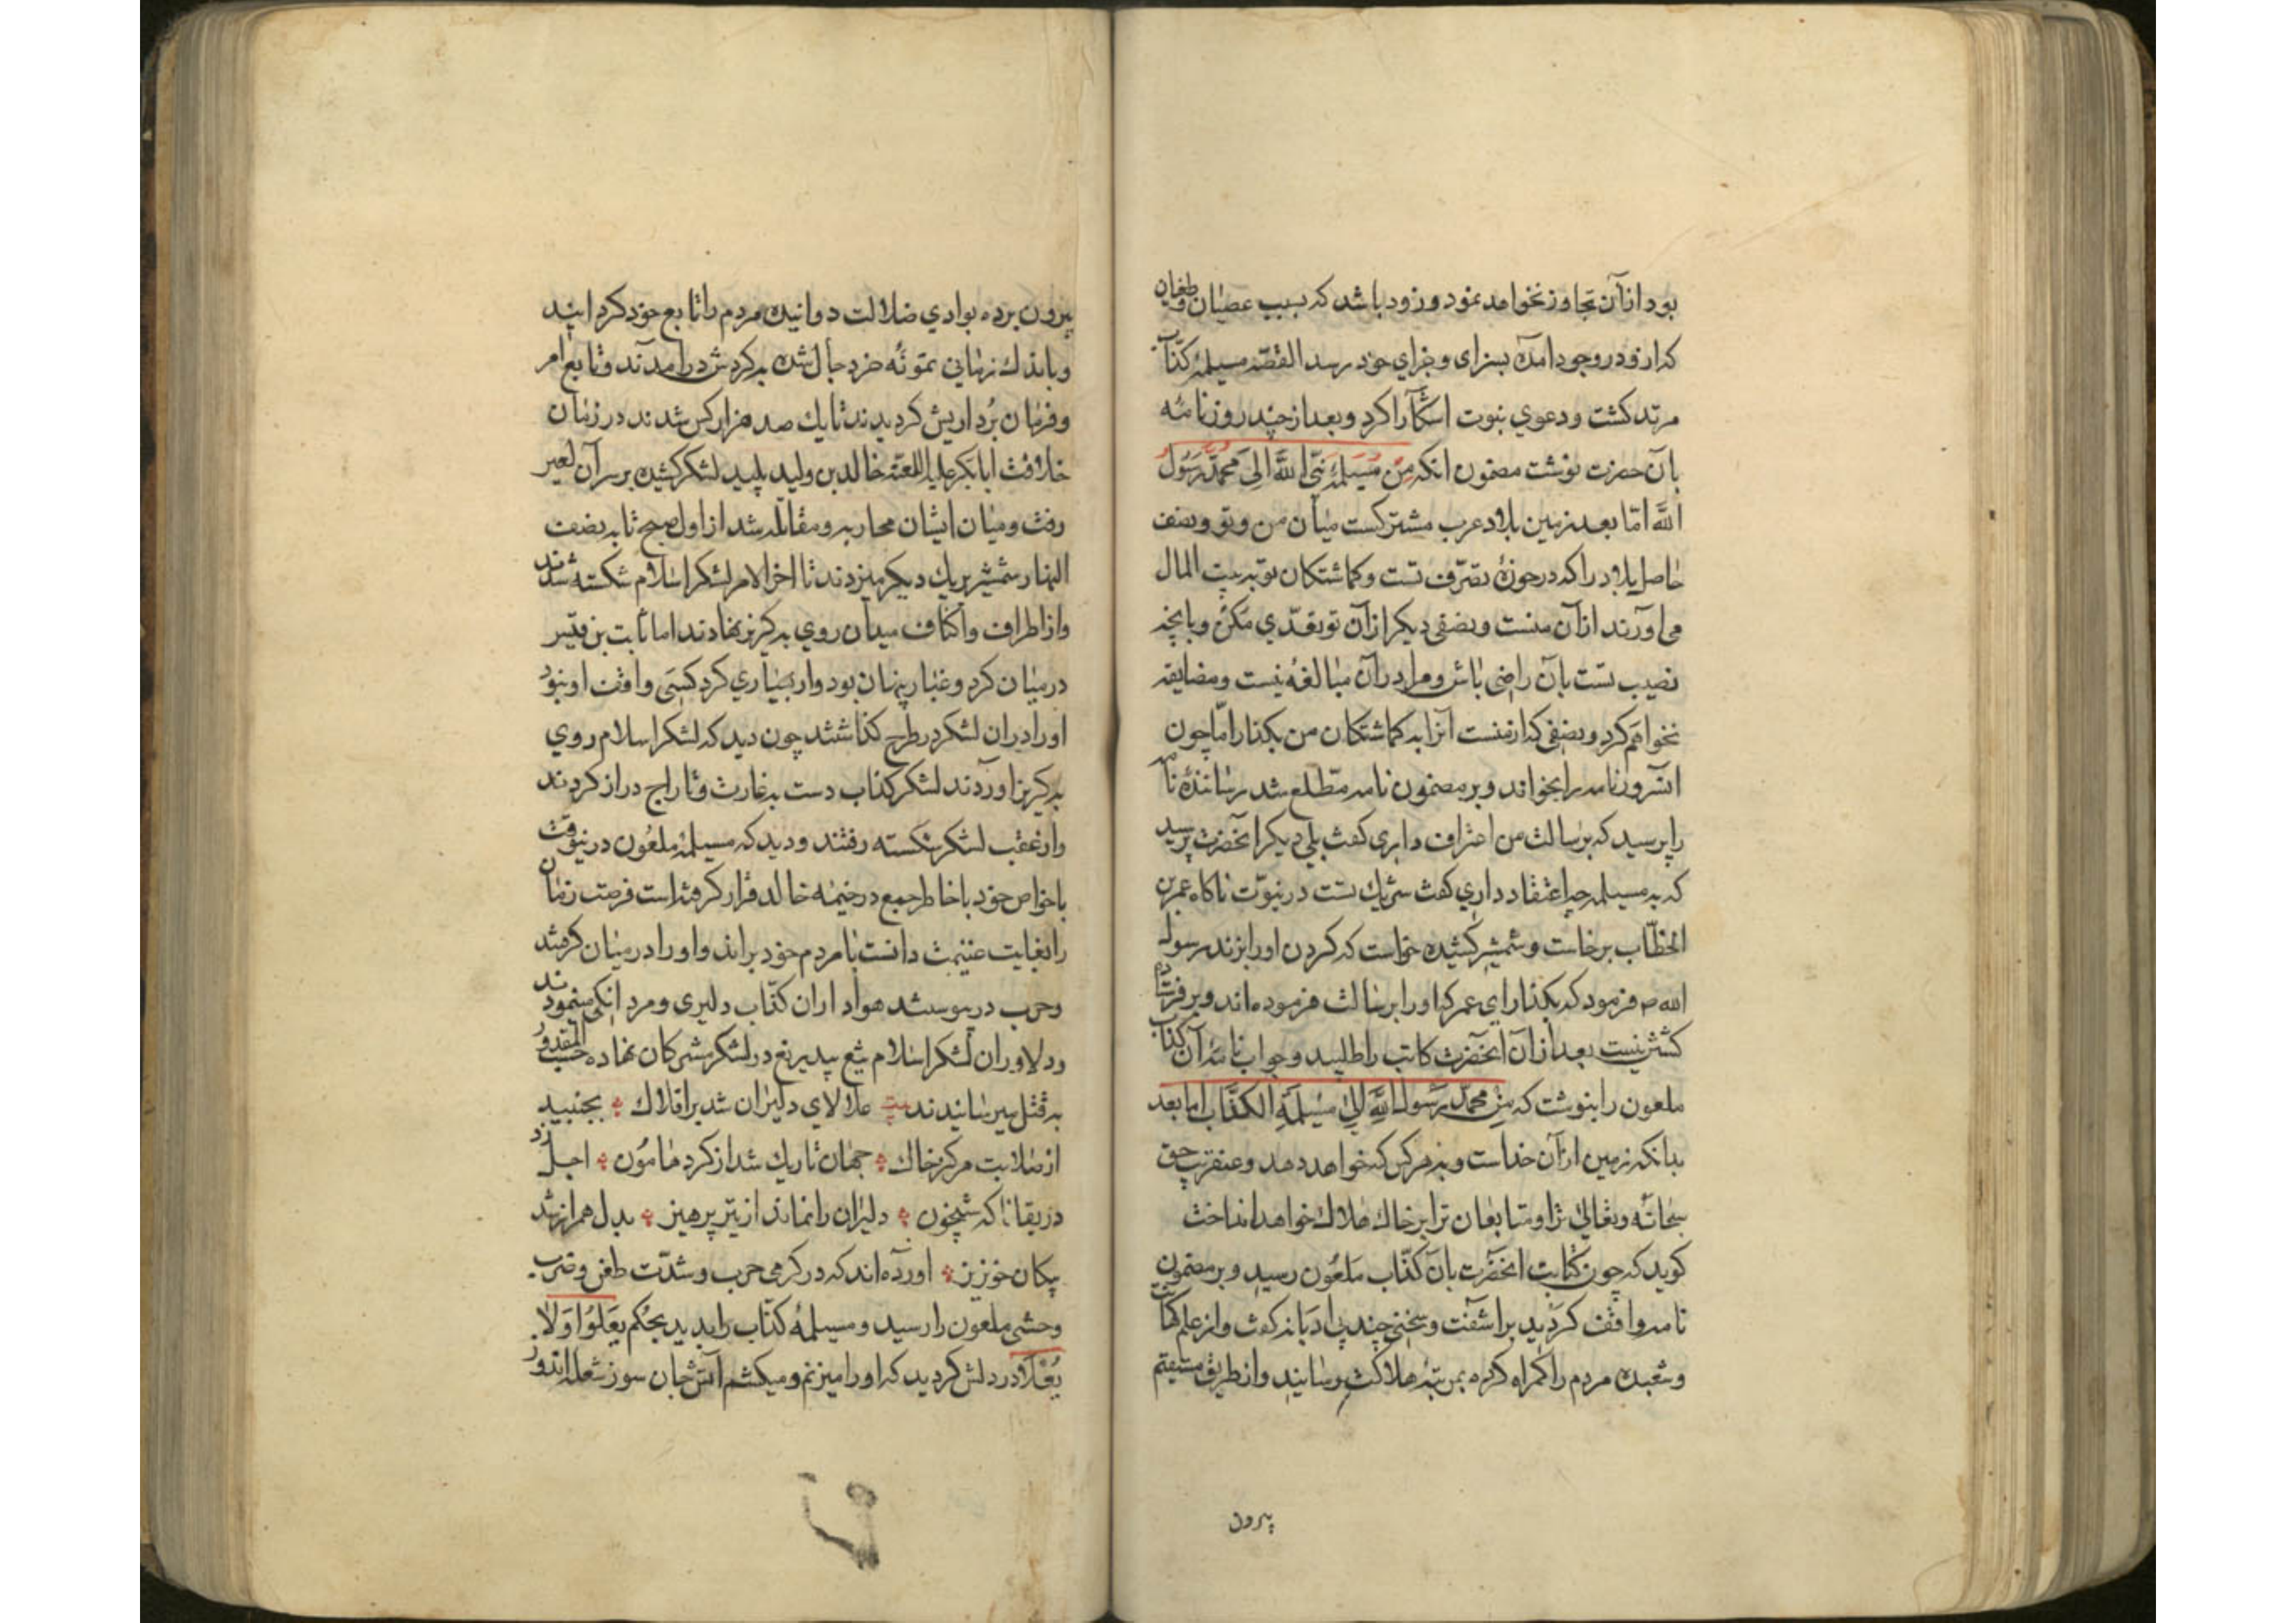 بود از آن تجاوز نخواهد نمود و زود باشد که بسبب عصیان و طغیان
که ازو در وجود آمده بسزای و جزای خود رسد القصّه مسیلمهٔ کذّاب
مرتد کشت و دعوي نبوت اشکارا کرد و بعد از چند روز نامه
بآن حضرت نوشت مضمون انکه مِنْ مُسَیلمة نَبیّ اللَّه الی محمّد رَسُول
اللَّه امّا بعد زمین بلاد عرب مشترکست میان من و تو و نصف
حاصل بلاد را که در حوزهٔ تصرّف تست و کماشتکان تو به بیت المال
می آورند از آن منست و نصفی دیکر از آن تو تعدّي مکن و بانچه
نصیب تست بآن راضی باش و مرا در آن مبالغه نیست و مضایقه
نخواهم کرد و نصفی که از منست آنرا به کماشتکان من بکذار امّا چون
انسرور نامه را بخواند و بر مضمون نامه مطّلع شد رسانندهٔ نامه
را پرسید که برسالت من اعتراف داری کفت بلي دیکر انحضرت پرسید
که به مسیلمه چه اعتقاد داري کفت شریك تست در نبوّت ناکاه عمر بن
الخطّاب برخاست و شمشیر کشیده خواست که کردن او را بزند رسول
الله ص فرمود که بکذار اي عمر که او را برسالت فرموده اند و بر فرستاده
کشتن نیست بعد از آن انحضرت کاتب را طلبید و جواب نامهٔ آن کذّاب
ملعون را بنوشت که مِنْ محمّد رَسُول اللَّهِ اِلیٰ مسیلمَة الکذّاب اما بعد
بدانکه زمین از آن خداست و به هر کس که خواهد دهد و عنقریب حق
سبحانه و تعالیٰ ترا و متابعان ترا بر خاك هلاك خواهد انداخت
کوید که چون کتابت انحضرت بآن کذّاب ملعون رسید و بر مضمون
نامه واقف کردید براشفت و سخنی چند بی ادبانه کفت و از علم کهانت
و شعبده مردم را کمراه کرده بمرتبهٔ هلاکت رسانید و از طریق مستقیم
بیرون
بیرون برده بوادي ضلالت دوانیده مردم را تابع خود کردانید
و باندك زمانی جال شده به کردش درامدند و تابع امر
و فرمان برداریش کردیدند تا یك صد هزار کس شدند در زمان
خلافت ابابکر علیه اللعنة خالد بن ولید پلید لشکر کشیده بر سر آن لعین
رفت و میان ایشان محاربه و مقاتله شد از اول صبح تا به نصف
النهار شمشیر بریك دیکر میزدند تا اخر الامر لشکر اسلام شکسته شدند
و از اطراف و اکناف میدان روي به کریز نهادند اما ثابت بن قیس
در میان کرد و غبار پنهان بود کسی واقف او نبود
او را دران لشکر در طرح کذاشتند چون دید که لشکر اسلام روي
به کریز اوردند لشکر کذاب دست به غارت و تاراج دراز کردند
و از عقب لشکر شکسته رفتند و دید که مسیلمهٔ ملعون درینوقت
با خواص خود با خاطر جمع در خیمه خالد قرار کرفته است فرصت زمان
را بغایت غنیمت دانست با مردم خود براند و او را در میان کرفتند
و حرب در پیوستند هواداران کذّاب دلیری و مردانکی مینمودند
و دلاوران لشکر اسلام تیغ بیدریغ در لشکر مشرکان نهاده حسب المقدور
به قتل میرسانیدند بیت علالای دلیران شد بر افلاك بجنبید
از صلابت مرکز خاك جهان تاریك شد از کرد هامون اجل زد
در بقا ناکه شبخون دلیران را نماند از تیر پرهیز بدل همراز شد
پیکان خونریز اورده اند که در کرمی حرب و شدّت طعن و ضرب
وحشی ملعون را رسید و مسیلمهٔ کذّاب را بدید بحکم یَعْلُوا وَلا
یُعْلَا در دلش کردید که او را میزنم و میکشم آتش جان سوز شعله اندوز